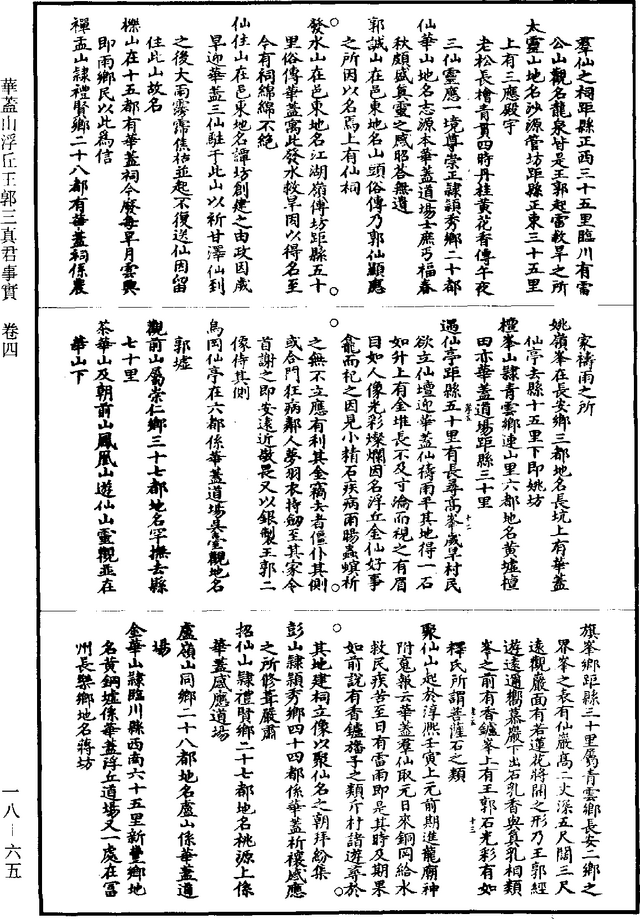 羣仙之祠距縣正西三十五里臨川有雷
公山觀名龍泉皆是王郭起雷救旱之所
太靈山地名沙源管坊距縣正東三十五里
上有三應殿宇
老松長檜青貫四時丹桂黃花香傳午夜
三仙靈應一境尊崇正隸穎秀鄉二十都
仙華山地名志源本華蓋道場士庶丐福春
秋頗盛真靈之感昭答無遺
郭誠山在邑東地名山頭俗傳乃郭仙顯應
之所因以名焉上有仙祠
發水山在邑東地名江湖嶺傳坊距縣五十
里俗傳華蓋寓此發水救旱因以得名至
今有祠綿綿不絕
仙住山在邑東地名譚坊創建之由政因歲
旱迎華蓋三仙駐于此山以祈甘澤仙到
之後大雨霧霈焦枯並起不復送仙因留
住此山故名
櫟山在十五都有華蓋祠今廢每旱月雲興
即雨鄉民以此為信
禪盂山隸禮賢鄉二十八都有華蓋祠係農
家禱雨之所
姚嶺峯在長安鄉三都地名長坑上有華蓋
仙亭去縣十五里下即姚坊
檀峯山隸青雲鄉連山里六都地名黃墟檀
田亦華蓋道場距縣三十里
遇仙亭距縣五十里有長尋高峯歲旱村民
欲立仙壇迎華蓋仙禱雨平其地得一石
如升上有金堆長不及寸淪而視之有眉
目如人像光彩燦爛因名浮丘金仙好事
龕而祀之因見小精石疾病雨暘蟲螟祈
之無不立應有利其金竊去者僵仆其側
或合門狂病鄰人夢羽衣持劒至其家令
首謝之即安遠近敬畏又以銀製王郭二
像侍其側
烏岡仙亭在六都係華蓋道場吳宝觀地名
郭墟
觀前山屬崇仁鄉三十七都地名罕撫去縣
七十里
茶華山及朝前山鳳凰山遊仙山靈觀並在
華山下
旗峯鄉距縣三十里屬青雲鄉長安二鄉之
界峯之表有仙巖高二丈深五尺闊三尺
遠觀巖面有若蓮花將開之形乃王郭經
遊遠邇嚮慕巖下出石乳香與真乳相類
峯之前有香鑪峯上有王郭石光彩有如
釋氏所謂菩薩石之類
聚仙山起於淳熙壬寅上元前期進龍廟神
附寬報云華蓋羣仙取元日來銅岡給水
救民疾苦至日有雷雨即是其時及期果
如前說有香鑪旛子之類斤村諸遊尋於
其地建祠立像以聚仙名之朝拜紛集
彭山隸穎秀鄉四十四都係華蓋祈禳感應
之所修葺嚴肅
招仙山隸禮賢鄉二十七都地名桃源上係
華蓋感應道場
盧嶺山同鄉二十八都地名盧山係華蓋道
場
金華山隸臨川縣西南六十五里新豐鄉地
名黃銅墟係華蓋浮丘道場又一處在冨
州長樂鄉地名蔣坊
華蓋山浮丘王郭三真君事實 卷四
一八－六五